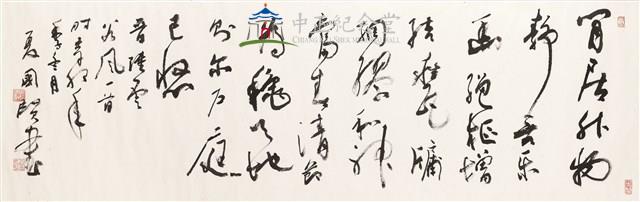 閒居外物
靜言樂
幽繩樞增
結甕牖
綢繆和神
當春清節
為穐天地
則爾戶庭
已悠
晉陸雲
谷風一首
夏國賢書
中正紀念堂
CHIANG KAI-SHEK MEMORIAL HALL